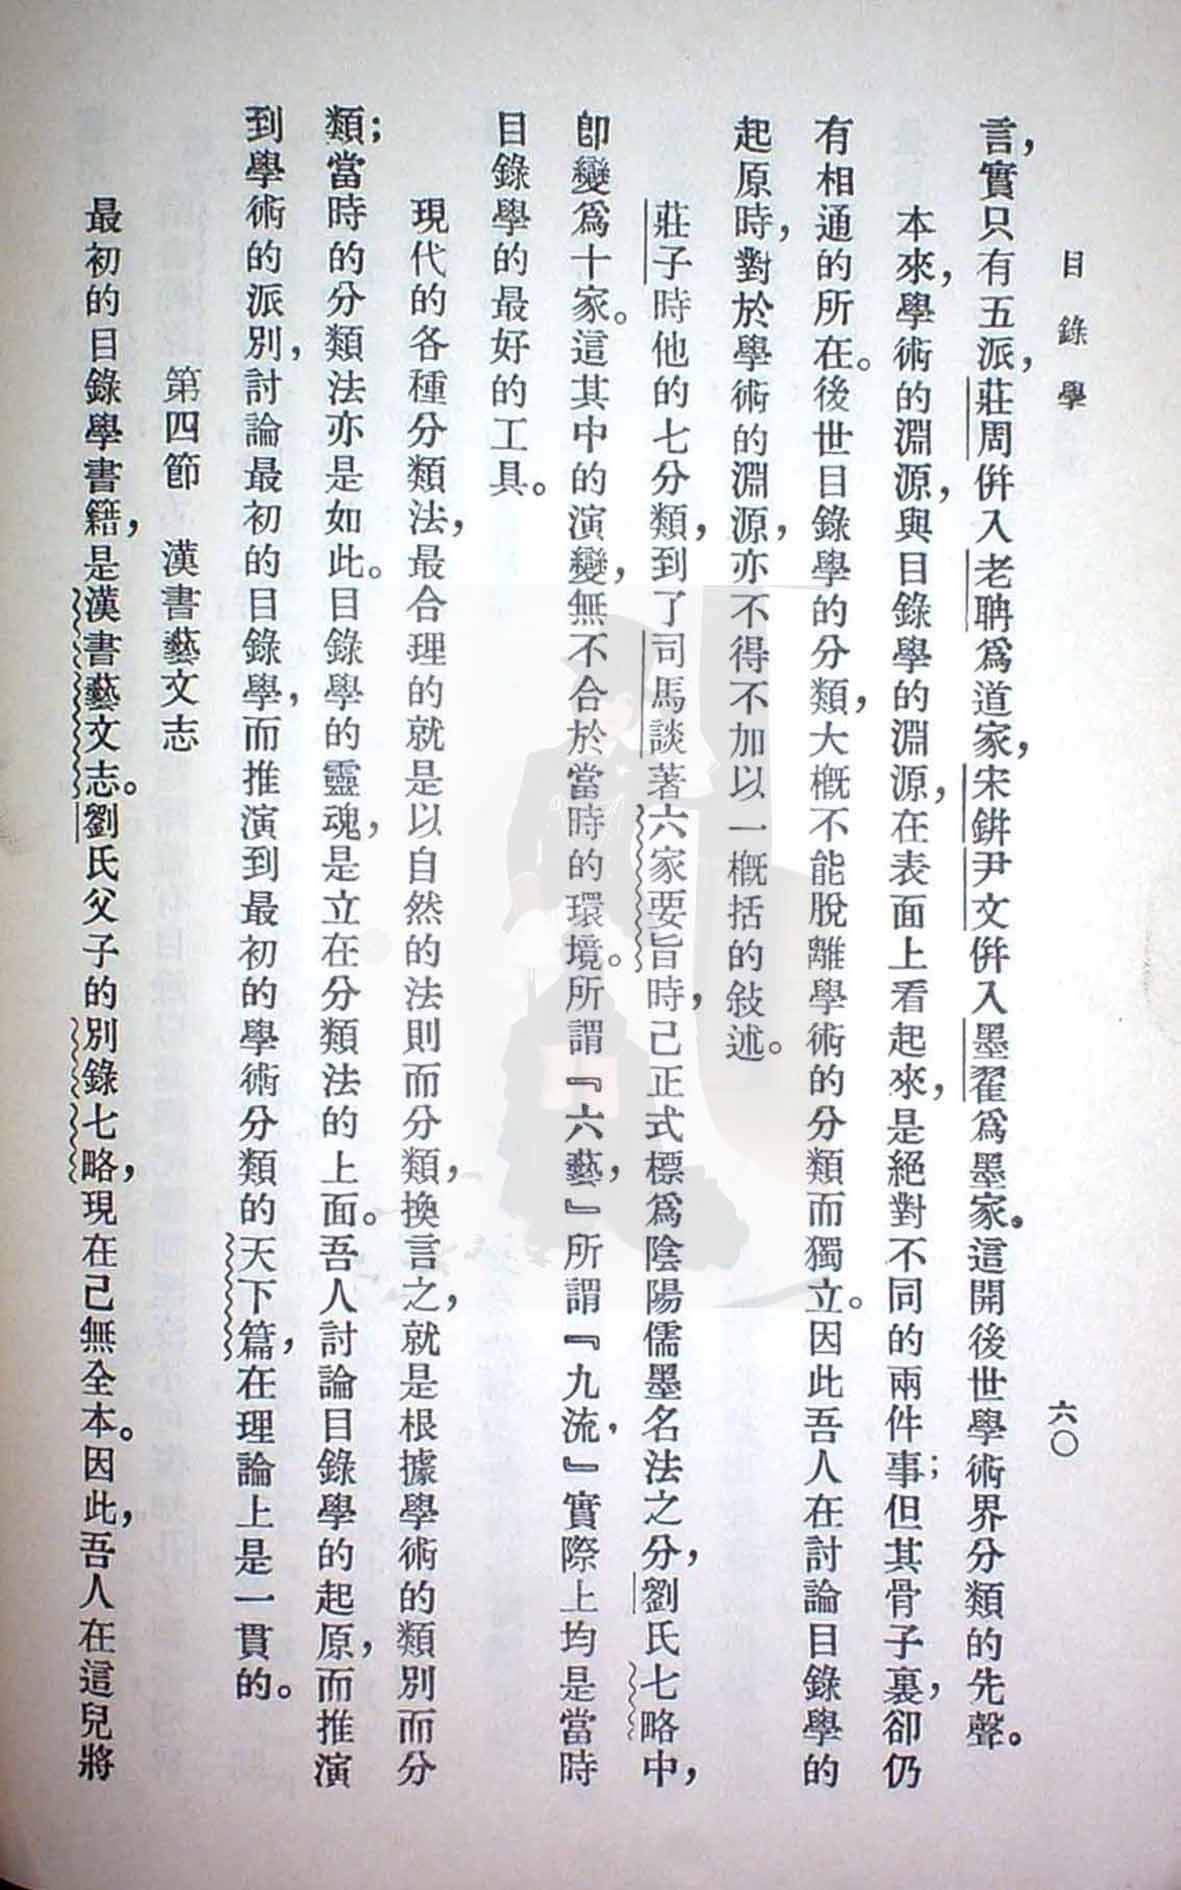 目錄學
六〇
言，實只有五派，莊周併入老聃爲道家，宋鈃尹文併入墨翟爲墨家。這開後世學術界分類的先聲。
本來，學術的淵源，與目錄學的淵源，在表面上看起來，是絕對不同的兩件事；但其骨子裏，卻仍
有相通的所在。後世目錄學的分類，大概不能脫離學術的分類而獨立。因此吾人在討論目錄學的
起原時，對於學術的淵源，亦不得不加以一概括的敍述。
莊子時他的七分類，到了司馬談著六家要旨時，己正式標爲陰陽儒墨名法之分，劉氏七略中，
卽變爲十家。這其中的演變，無不合於當時的環境。所謂『六藝，』所謂『九流，』實際上均是當時
目錄學的最好的工具。
現代的各種分類法，最合理的就是以自然的法則而分類，換言之，就是根據學術的類別而分
類；當時的分類法亦是如此。目錄學的靈魂，是立在分類法的上面。吾人討論目錄學的起原，而推演
到學術的派別，討論最初的目錄學，而推演到最初的學術分類的天下篇，在理論上是一貫的。
第四節　漢書藝文志
最初的目錄學書籍，是漢書藝文志。劉氏父子的別錄七略，現在己無全本。因此，吾人在這兒將